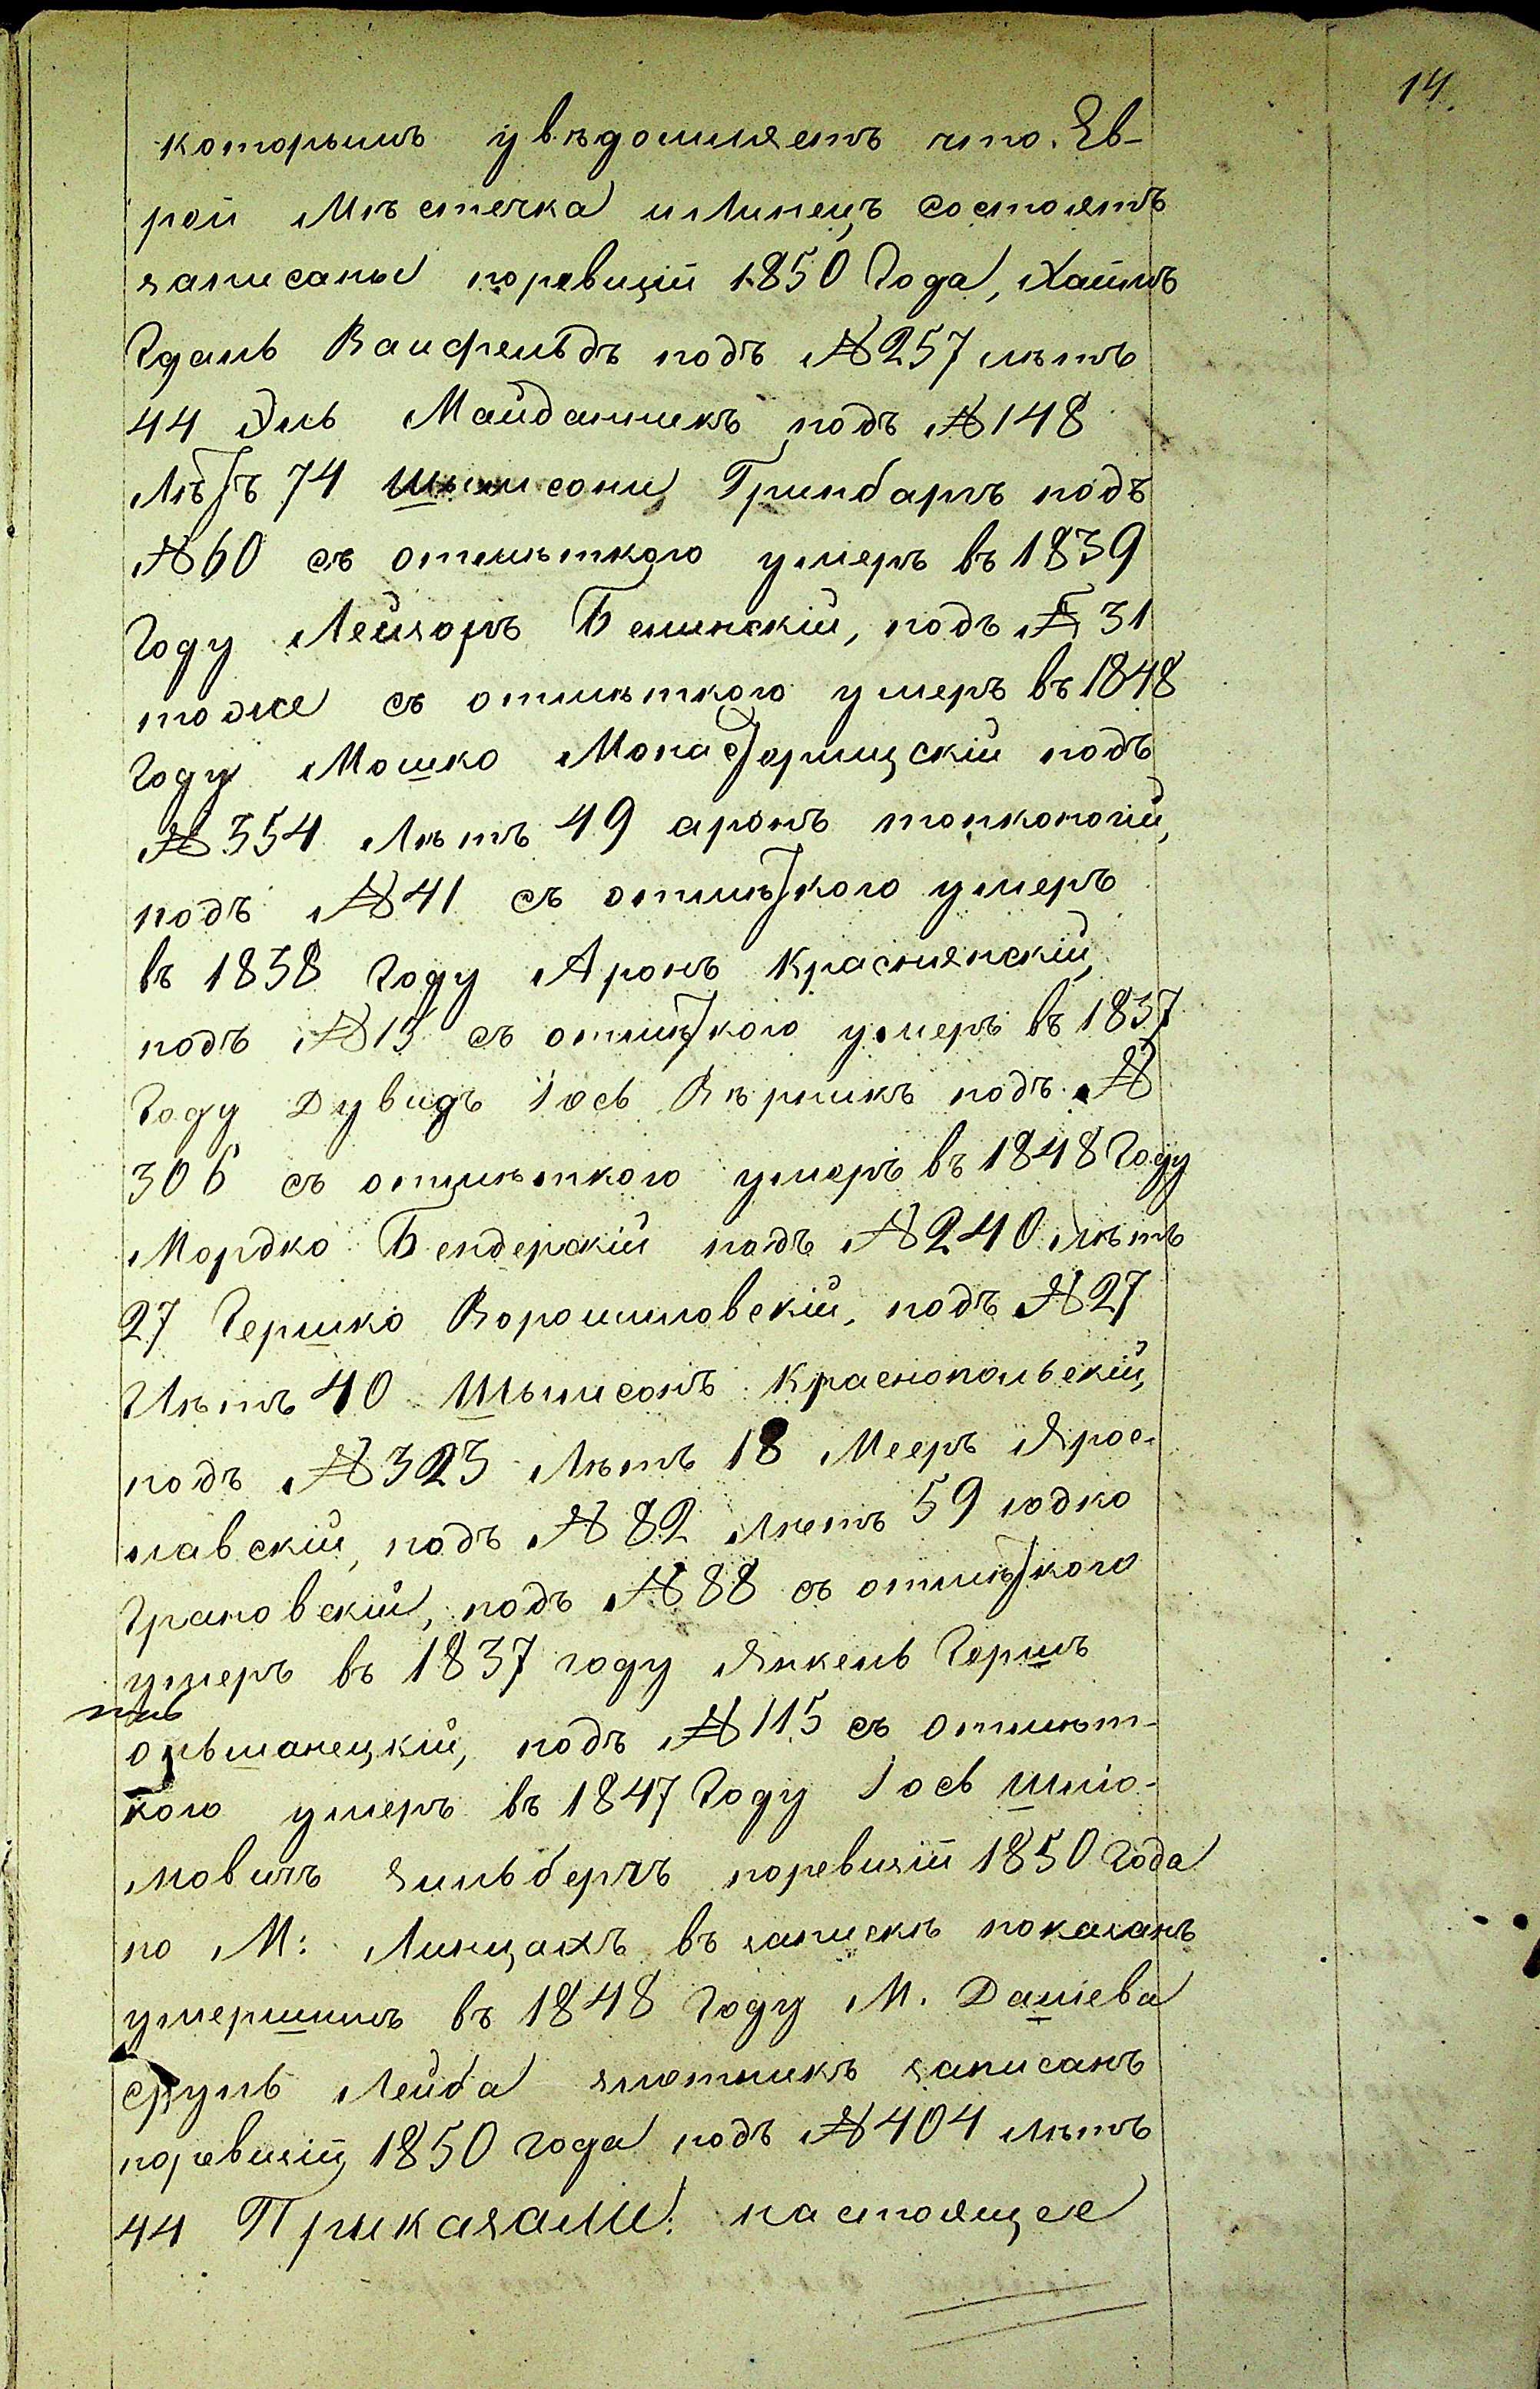 14.
которымъ увѣдомляетъ что. Ев-
реи Мѣстечка илинецъ состоятъ
записаны поревизіи 1850 Года, Хаимъ
Гдаль Ваисфельдъ подъ № 257 лѣтъ
44 Эль Майданникъ подъ № 148
Лѣтъ 74 Шымсонъ Гринбаргъ подъ
№ 60 съ отмѣткого умеръ въ 1839
Году Лейзоръ Белинскій, подъ № 31
тоже съ отмѣткого умеръ въ 1848
Году Мошко Монастырищскій подъ
№ 354 Лѣтъ 49 аронъ тонконогій,
подъ № 41 съ отмѣткого умеръ
въ 1838 Году Аронъ Краснянскій,
подъ № 15 съ отмѣткого умеръ въ 1837
Году Дувидъ Іось Вѣрникъ подъ №
306 съ отмѣткого умеръ въ 1848 Году
Мордко Бендерскій подъ № 240 лѣтъ
27 Гершко Ворошиловскій, подъ № 27
Лѣтъ 40 Шымсонъ Краснопольскій,
подъ № 323 Лѣтъ 18 Мееръ Ярос-
лавскій, подъ № 82 Лѣтъ 59 юдко
Грановскій, подъ № 88 съ отмѣткого
умеръ въ 1837 году Янкель Гершъ
ольшанецкій, подъ № 115 съ отмѣт-
кого умеръ въ 1847 Году Іось Шліо-
мовичъ Зильбергъ поревизіи 1850 Года
по М: Линцахъ въ запискѣ показанъ
умершимъ въ 1848 Году М. Дашева
сруль Лейба злотникъ записанъ
поревизіи 1850 года подъ № 404 лѣтъ
44 Приказали: настоящее